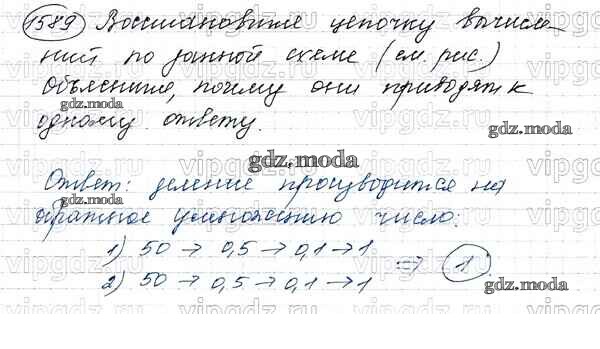 1589 Восстановите цепочку вычисле-
ний по данной схеме (см. рис.)
Объясните, почему они приводят к
gdz.moda
одному ответу.
gdz.moda
gdz.moda
Ответ: деление производится на
gdz.moda
обратное умножению число:
1) 50 → 0,5 → 0,1 → 1
2) 50 → 0,5 → 0,1 → 1
⇒ 1
gdz.moda
gdz.moda
vipgdz.ru